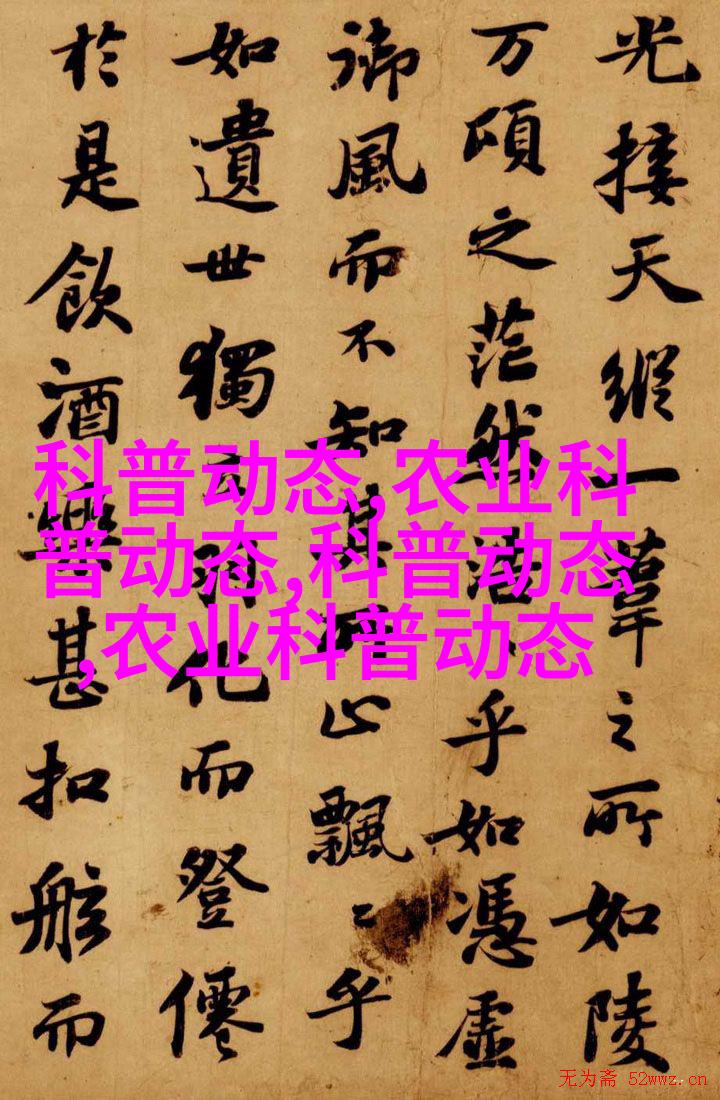 光接天縱一葦之所如陵
万頃之茫然浩〻乎如憑虛
御風而不知其所止飄〻乎
如遺世獨立羽化而登僊
於是飲酒樂甚扣舷而
科普动态,农业科
普动态,科普动态
,农业科普动态
无为斋 52wwz.cn